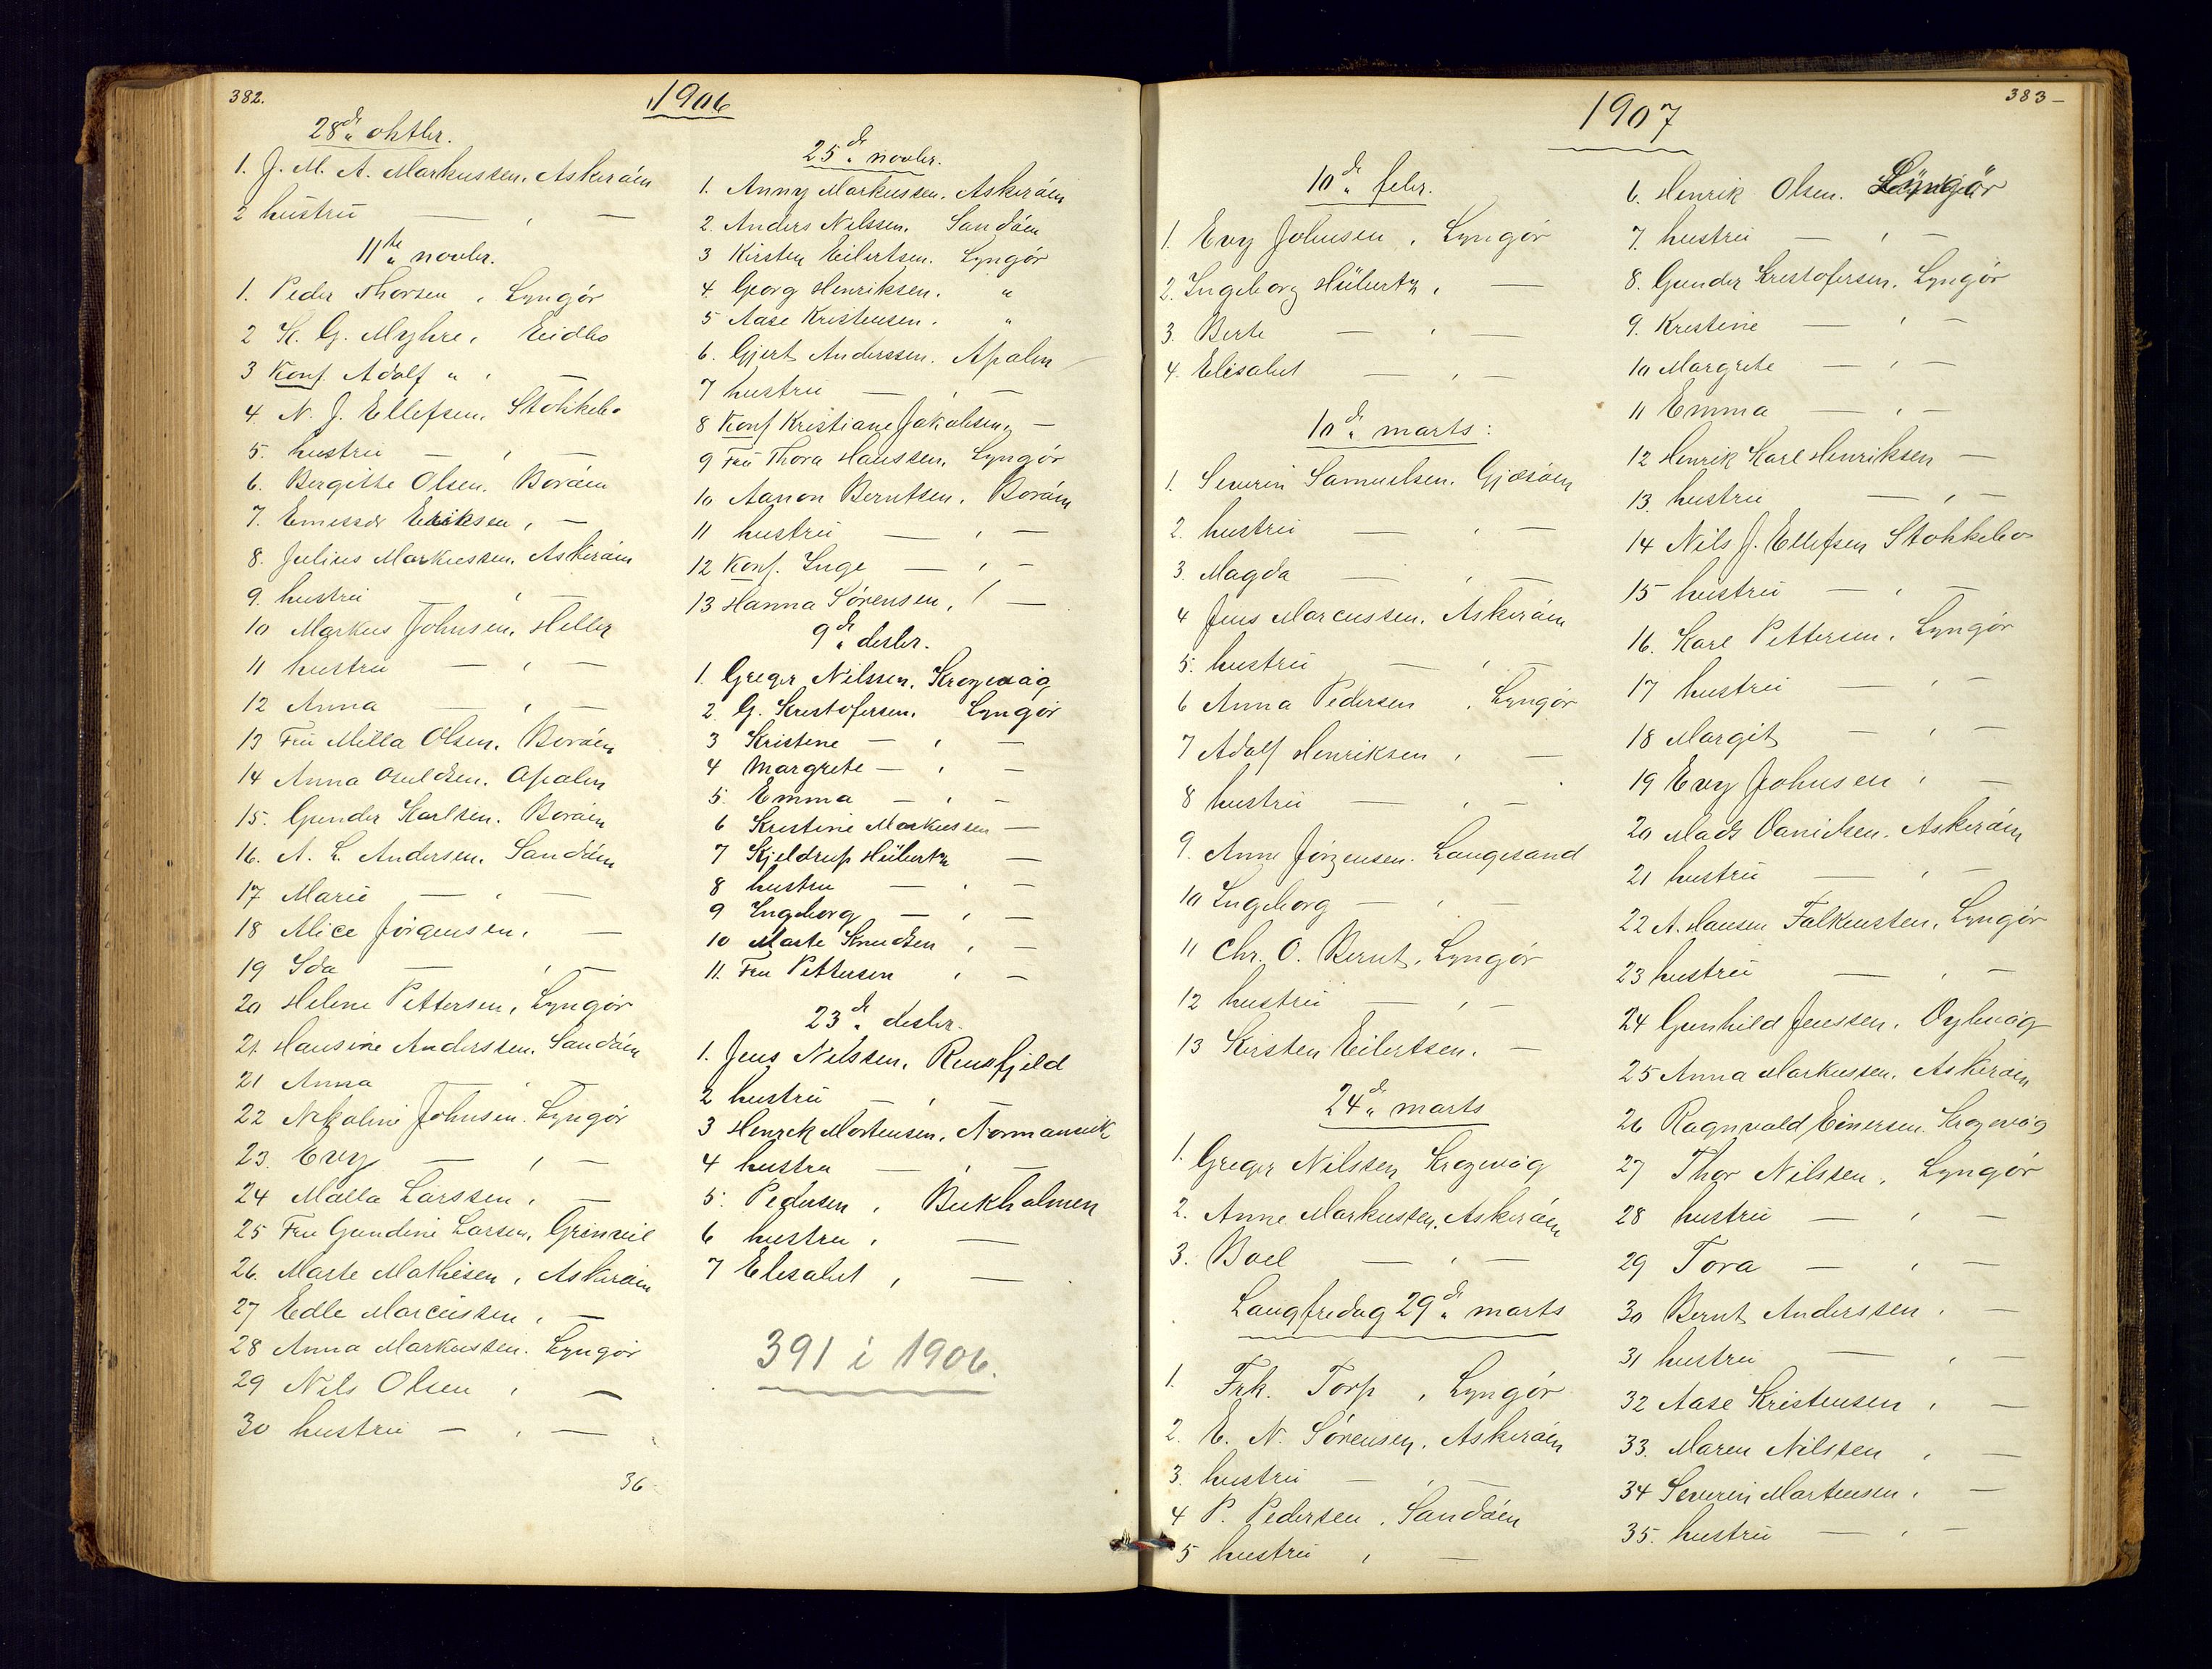 382.
1906
28de oktbr.
1. J. M. A. Markussen. Askeröen
2 hustru — , —
11te novbr.
1. Peder Thorsen , Lyngör
2 K. G. Myhre, Eidbo
3 Konf. Adolf " , —
4. N. J. Ellefsen. Stokkebo
5. hustru — , —
6. Bergitte Olsen. Boröen
7. Eriksen , —
8. Julius Markussen. Askeröen
9. hustru , —
10 Markus Johnsen. Hellen
11 hustru — , —
12 Anna — , —
13 Fru Milla Olsen. Boröen
14 Anna Osuldsen. Apalen
15. Gunder Karlsen. Boröen
16. A. L. Andersen. Sandöen
17 Marie — , —
18 Alice Jörgensen. —
19 Ida — , —
20 Helene Pettersen, Lyngör
21. Hansine Anderssen. Sandöen
21 Anna — , —
22 Nikoline Johnsen. Lyngör
23. Evy — , —
24 Malla Larssen , —
25 Fru Gundine Larsen,
26. Marte Mathisen , Askeröen
27 Edle Marcussen , —
28 Anna Markussen. Lyngör
29 Nils Olsen , —
30 hustru — , —
36
25de novbr.
1. Anny Markussen. Askeröen
2. Anders Nilssen. Sandöen
3 Kirsten Eilertsen. Lyngör
4. Georg Henriksen. "
5 Aase Kristensen. "
6. Gjert Anderssen. Apalen
7 hustru — , —
8 Konf Kristiane Jakobsen, —
9 Fru Thora Hanssen. Lyngör
10 Aanon Berntsen. Boröen
11 hustru — , —
12 Konf. Inge — , —
13 Hanna Sörensen, —
9de desbr.
1. Greger Nilssen. Krogevåg
2. G. Kristofersen. Lyngör
3 Kristine — , —
4 Margrete — , —
5. Emma — , —
6 Kristine Markussen —
7 Kjeldrup Hübertz —
8 hustru — , —
9 Ingeborg — , —
10 Marte Knudsen , —
11. Fru Pettersen , —
23de desbr.
1. Jens Nilssen, Rusfjeld
2 hustru — , —
3 Henrik Mortensen. Normansvik
4 hustru — , —
5. Pedersen , Bukholmen
6 hustru , —
7 Elisabet , —
391 i 1906.
383 —
1907
10de febr.
1. Evy Johnsen , Lyngör
2. Ingeborg Hübertz , —
3. Berte — , —
4. Elisabet — , —
10de marts:
1. Severin Samuelsen. Gjæsöen
2. hustru — , —
3. Magda — , —
4 Jens Marcussen. Askeröen
5. hustru — , —
6 Anna Pedersen , Lyngör
7 Adolf Henriksen , —
8 hustru — , —
9. Anne Jörgensen. Langesand
10 Ingeborg — , —
11 Chr. O. Bernt. Lyngör
12 hustru — , —
13 Kirsten Eilertsen. —
24de marts
1. Greger Nilssen Krogevåg
2. Anne Markussen. Askeröen
3. Boel — , —
Langfredag 29de marts
1. Frk. Torp , Lyngör
2. E. N. Sörensen. Askeröen
3. hustru — , —
4 P. Pedersen . Sandöen
5 hustru , —
6. Henrik Olsen. Lyngör
7. hustru — , —
8. Gunder Kristofersen. Lyngör
9. Kristine — , —
10 Margrete — , —
11 Emma — , —
12 Henrik Karl Henriksen —
13. hustru — , —
14 Nils J. Ellefsen Stokkebo
15 hustru — , —
16. Karl Pettersen. Lyngör
17 hustru — , —
18 Margit — , —
19 Evy Johnsen , —
20 Mads Danielsen. Askeröen
21 hustru — , —
22 A. Hansen Falkensten. Lyngör
23 hustru — , —
24 Gunhild Jenssen.
25 Anna Markussen. Askeröen
26 Ragnvald Einersen. Krogevåg
27 Thor Nilssen. Lyngör
28 hustru — , —
29 Tora — , —
30 Bernt Anderssen . —
31 hustru — , —
32 Aase Kristensen , —
33. Maren Nilssen , —
34 Severin Martensen. —
35. hustru — , —